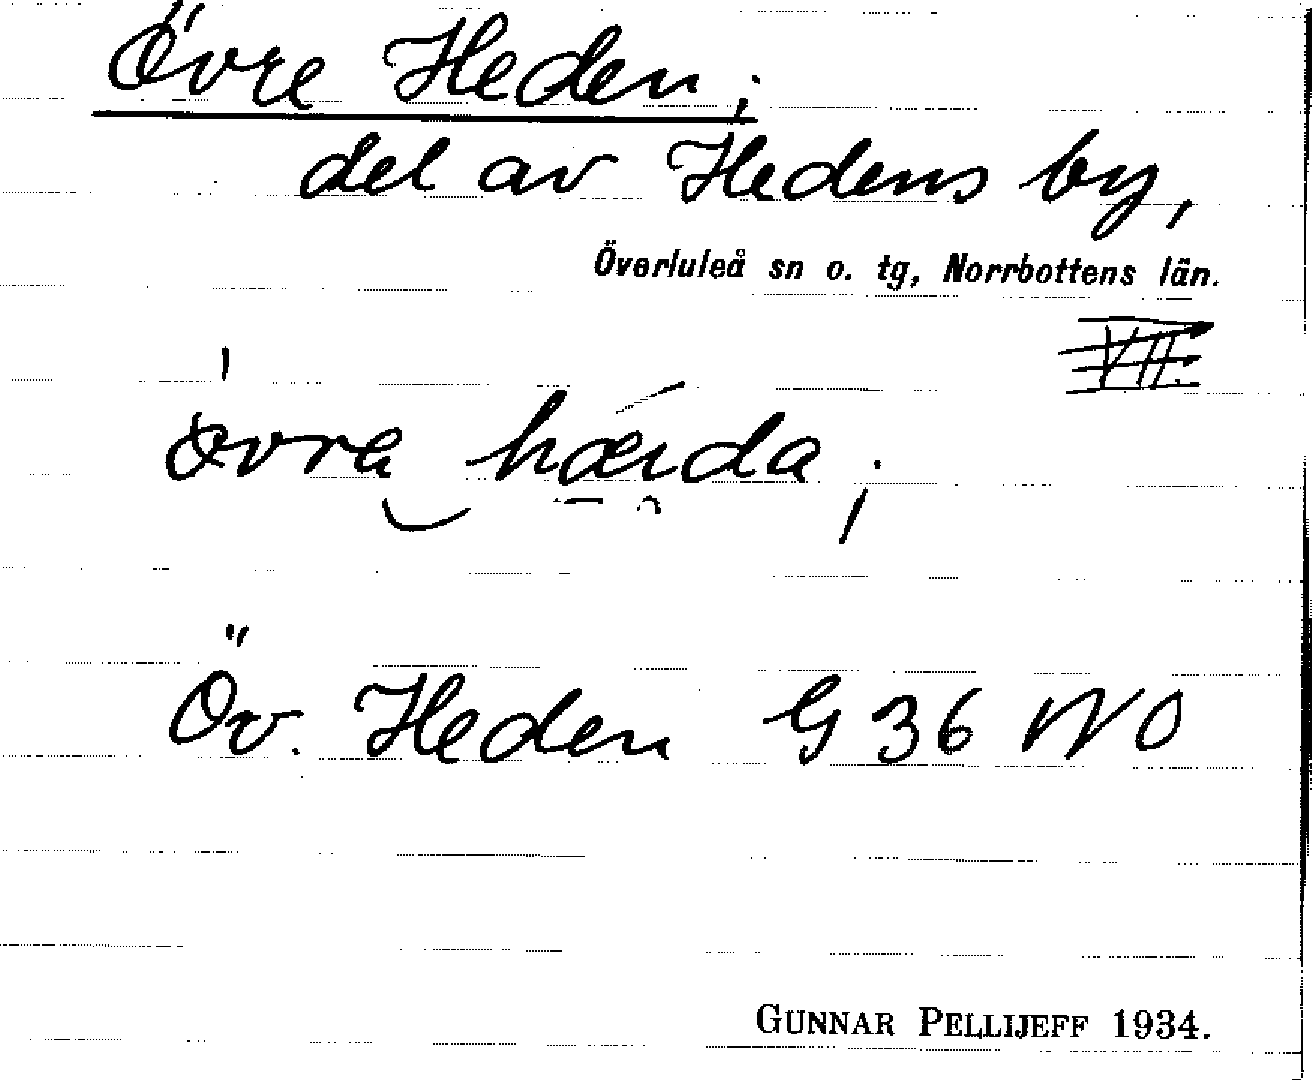 Övre Heden;
del av Hedens by,
Överluleå sn o. tg, Norrbottens län.
VII.
Öv. Heden G 36 NO
GUNNAR PELLIJEFF 1934.